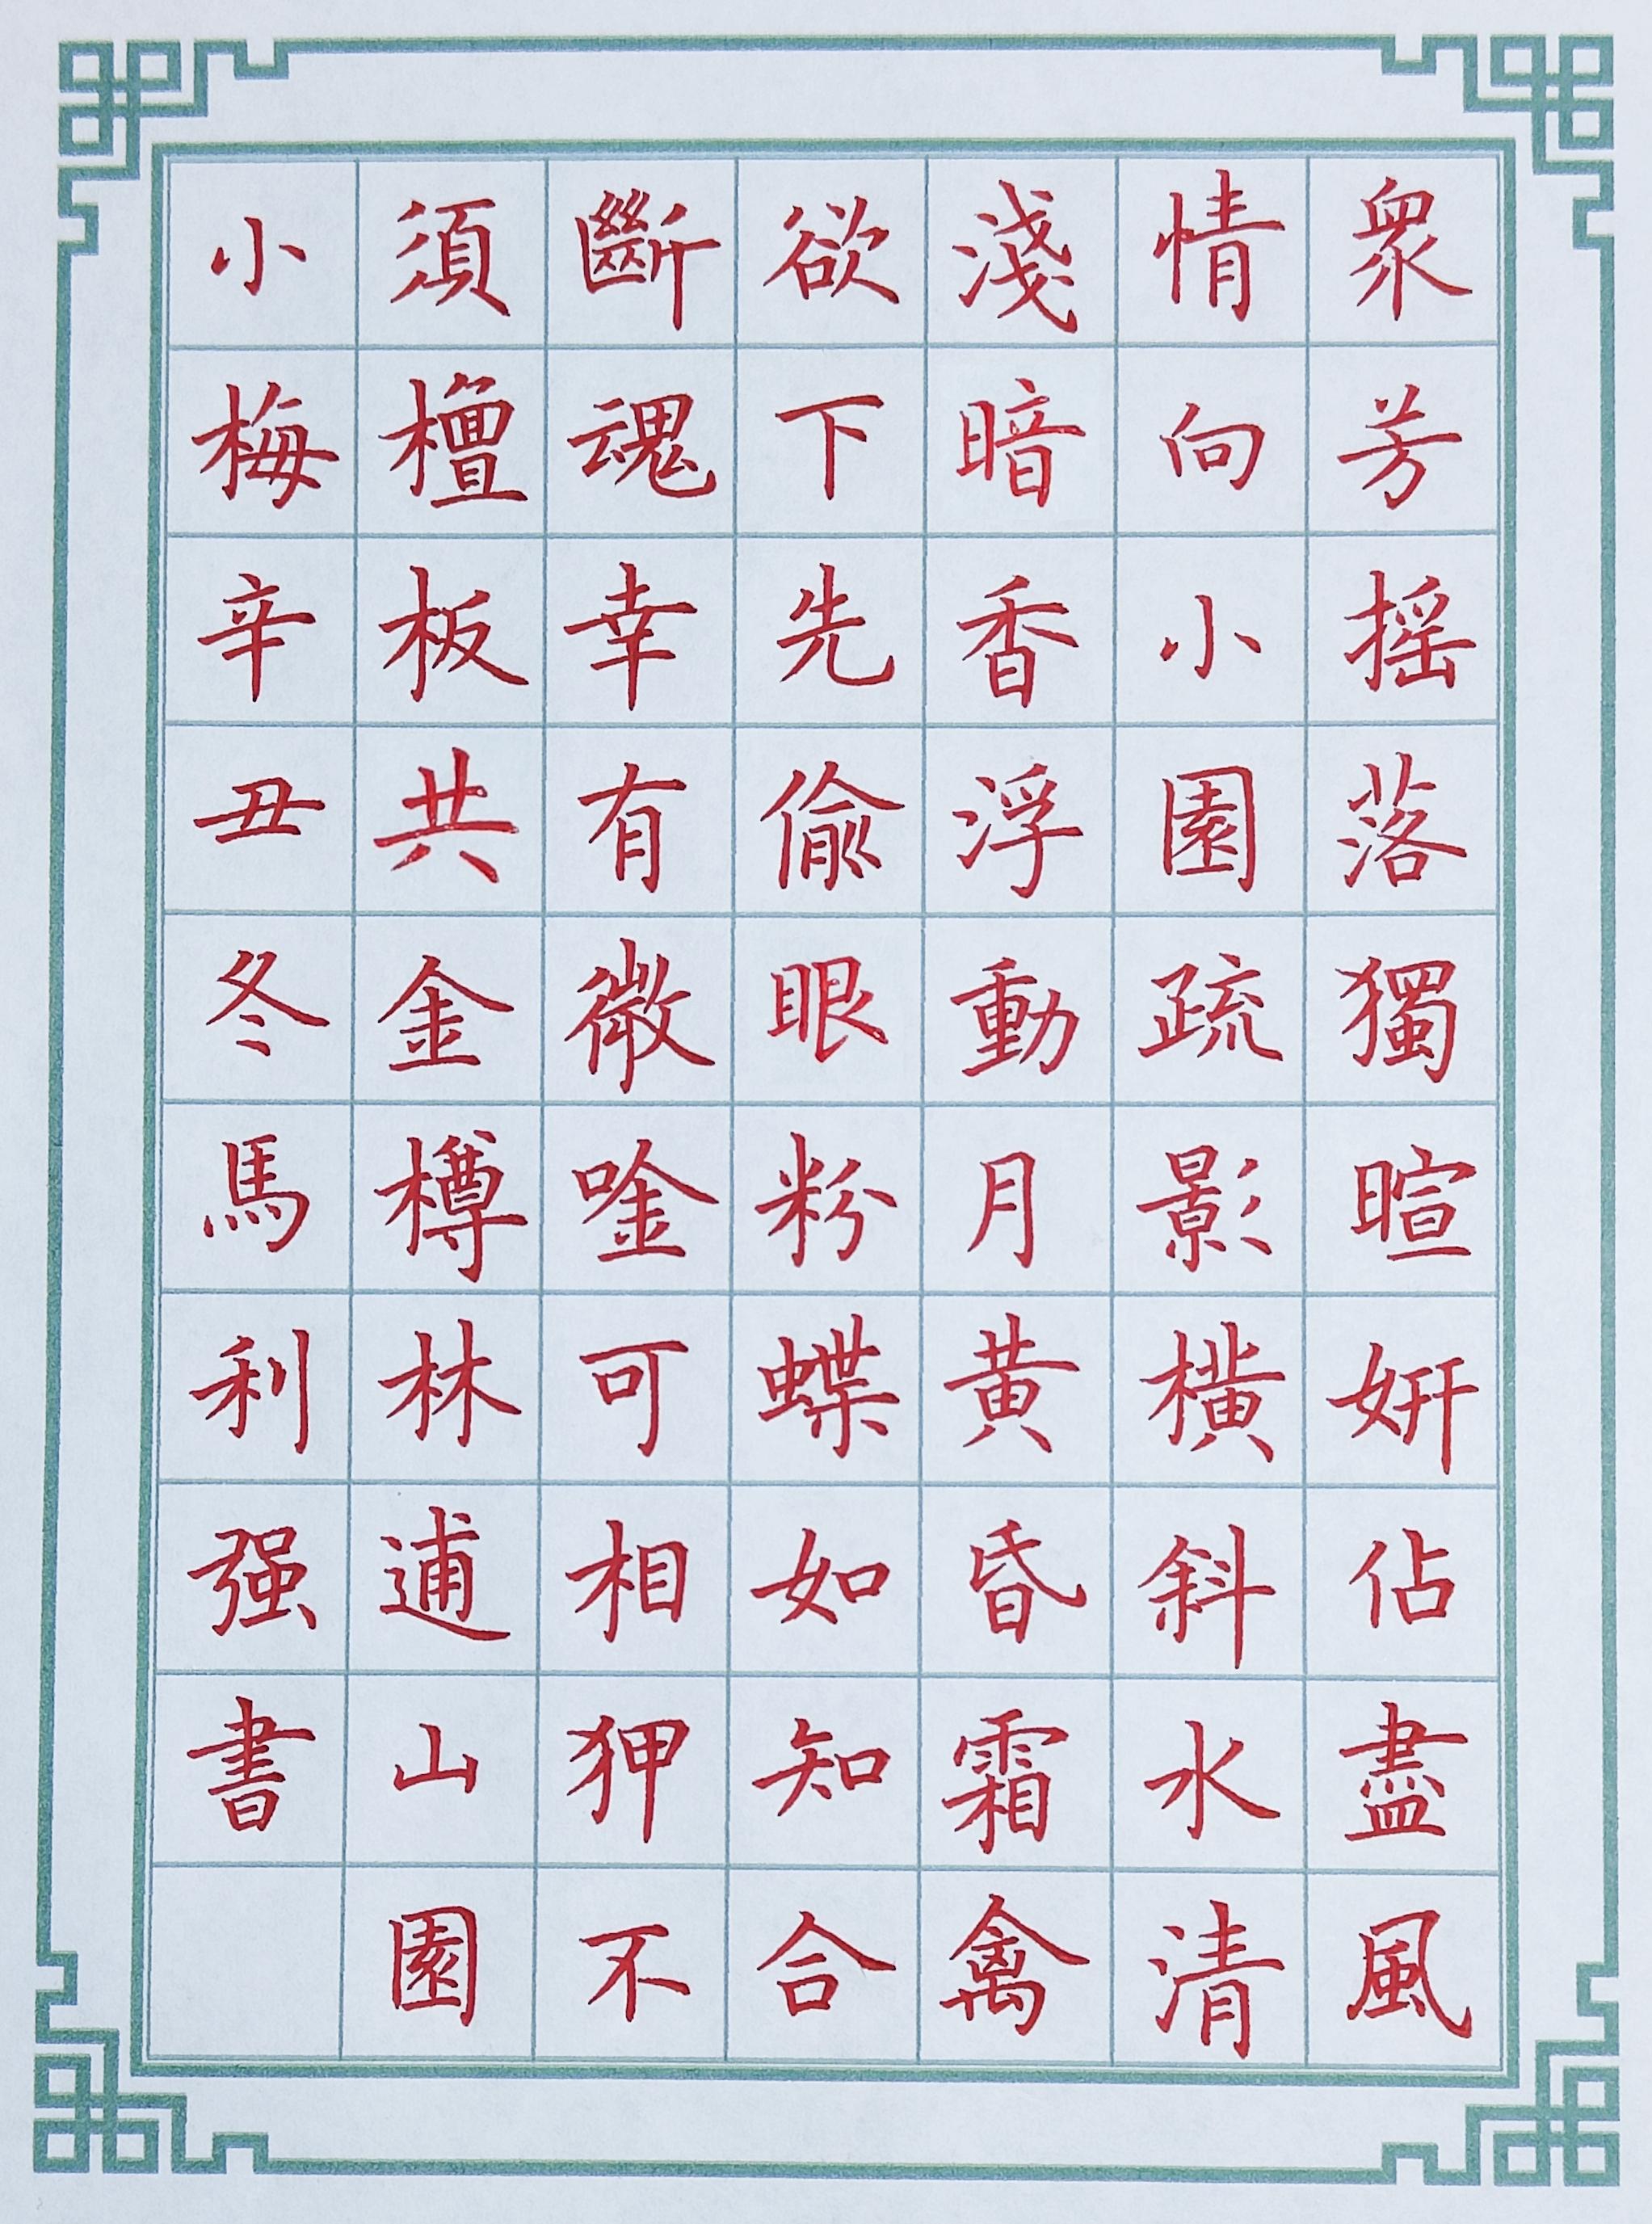 衆芳摇落獨暄妍佔盡風
情向小園疏影橫斜水清
淺暗香浮動月黃昏霜禽
欲下先偷眼粉蝶如知合
斷魂幸有微唫可相狎不
須檀板共金樽林逋山園
小梅辛丑冬馬利强書